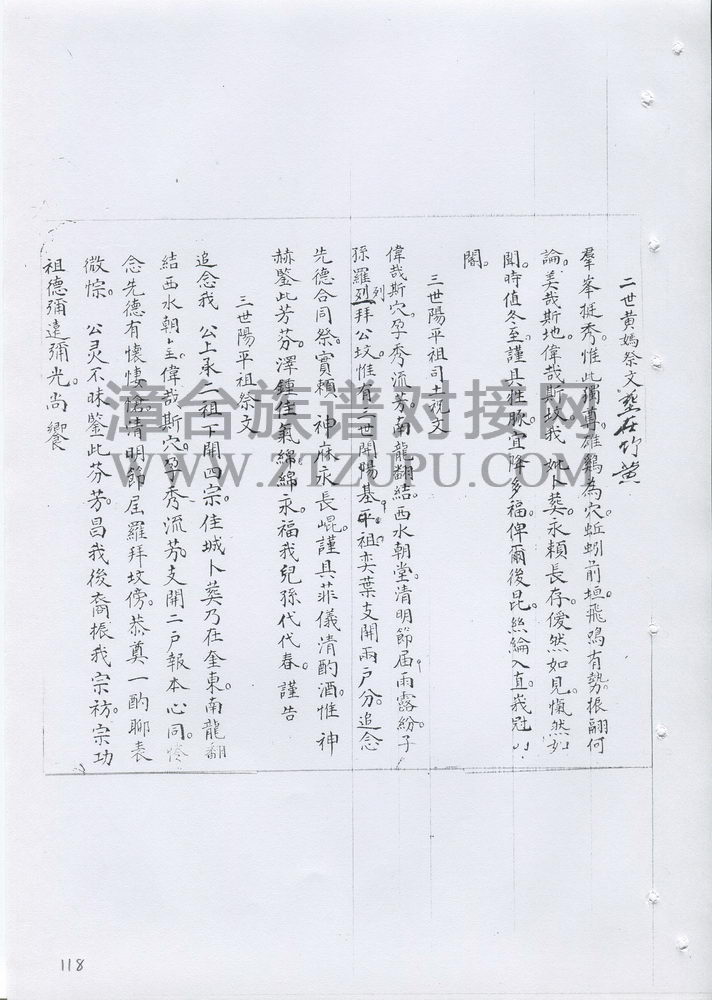 二世黄媽祭文 墓在竹黄
羣峯挺秀。惟此獨尊。雄鷄為穴。蚯蚓前垣。飛鳴有勢。振翮何
論。美哉斯地。偉哉斯坟。我妣卜葬。永賴長存。僾然如見。愾然如
聞。時值冬至。謹具牲豚。宜降多福。俾爾後昆。絲綸入直。峩冠
閣。
三世陽平祖司土祝文
偉哉斯穴。孕秀流芳。南龍翻結。西水朝堂。清明節届。雨露紛。子
孫羅列列拜公坟。惟有二世開陽基。平祖奕葉支開兩户分。追念
先德合同祭。實賴神庥永長崐。謹具菲儀清酌酒。惟神
赫鑒此芳芬。澤鍾佳氣綿綿永。福我兒孫代代春。謹告
三世陽平祖祭文
追念我 公。上承二祖。下開四宗。佳城卜葬。乃在奎東。南龍翻
結。西水朝。偉哉斯穴。孕秀流芳。支開二户。報本心同。
念先德。有懷悽愴。清明節届。羅拜坟傍。恭奠一酌。聊表
微悰。 公灵不昧。鑒此芬芳。昌我後裔。振我宗祊。宗功
祖德。彌遠彌光。尚饗
118
漳台族谱对接网
WWW.ZTZUPU.COM